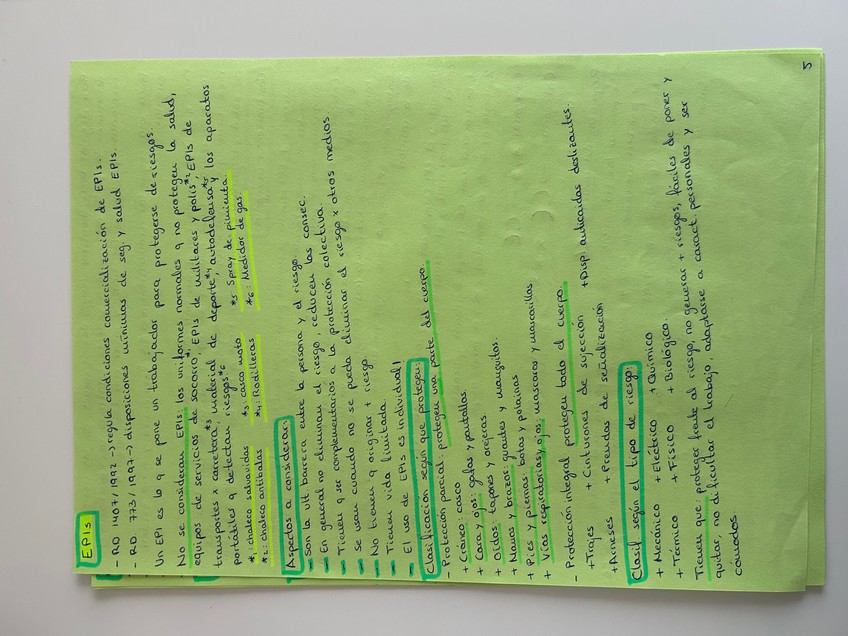 EPIs
- RD 1407/1992 → regula condiciones comercialización de EPIs.
- RD 773/1997 → disposiciones mínimas de seg. y salud EPIs
Un EPI es lo q se pone un trabajador para protegerse de riesgos.
No se consideran EPIs: los uniformes normales q no protegen la salud,
equipos de servicios de socorro*1, EPIs de militares y polis*2, EPIs de
transportes x carretera*3, material de deporte*4, autodefensa*5 y los aparatos
portátiles q detectan riesgos*6
*1: chaleco salvavidas *3: casco moto *5 Spray de pimienta
*2: chaleco antibalas *4: Rodilleras *6: Medidor de gas.
Aspectos a considerar:
- Son la últ barrera entre la persona y el riesgo
- En general no eliminan el riesgo, reducen las consec.
- Tienen q ser complementarios a la protección colectiva.
- Se usan cuando no se pueda eliminar el riesgo x otros medios
- No tienen q originar + riesgo
- Tienen vida limitada.
- El uso de EPIs es individual!
Clasificación según que protegen:
- Protección parcial: protegen una parte del cuerpo.
+ Cráneo: casco
+ Cara y ojos: gafas y pantallas
+ Oídos: tapones y orejeras
+ Manos y brazos: guantes y manguitos.
+ Pies y piernas: botas y polainas
+ Vías respiratorias y ojos: máscaras y mascarillas
- Protección integral protegen todo el cuerpo.
+ Trajes + Cinturones de sujección + Disp. anticaídas deslizantes.
+ Arneses + Prendas de señalización
Clasif según el tipo de riesgo:
+ Mecánico + Eléctrico + Químico
+ Térmico + Físico + Biológico.
Tienen que: proteger frente al riesgo, no generar + riesgos, fáciles de poner y
quitar, no dificultar el trabajo, adaptarse a caract. personales y ser
cómodos
5